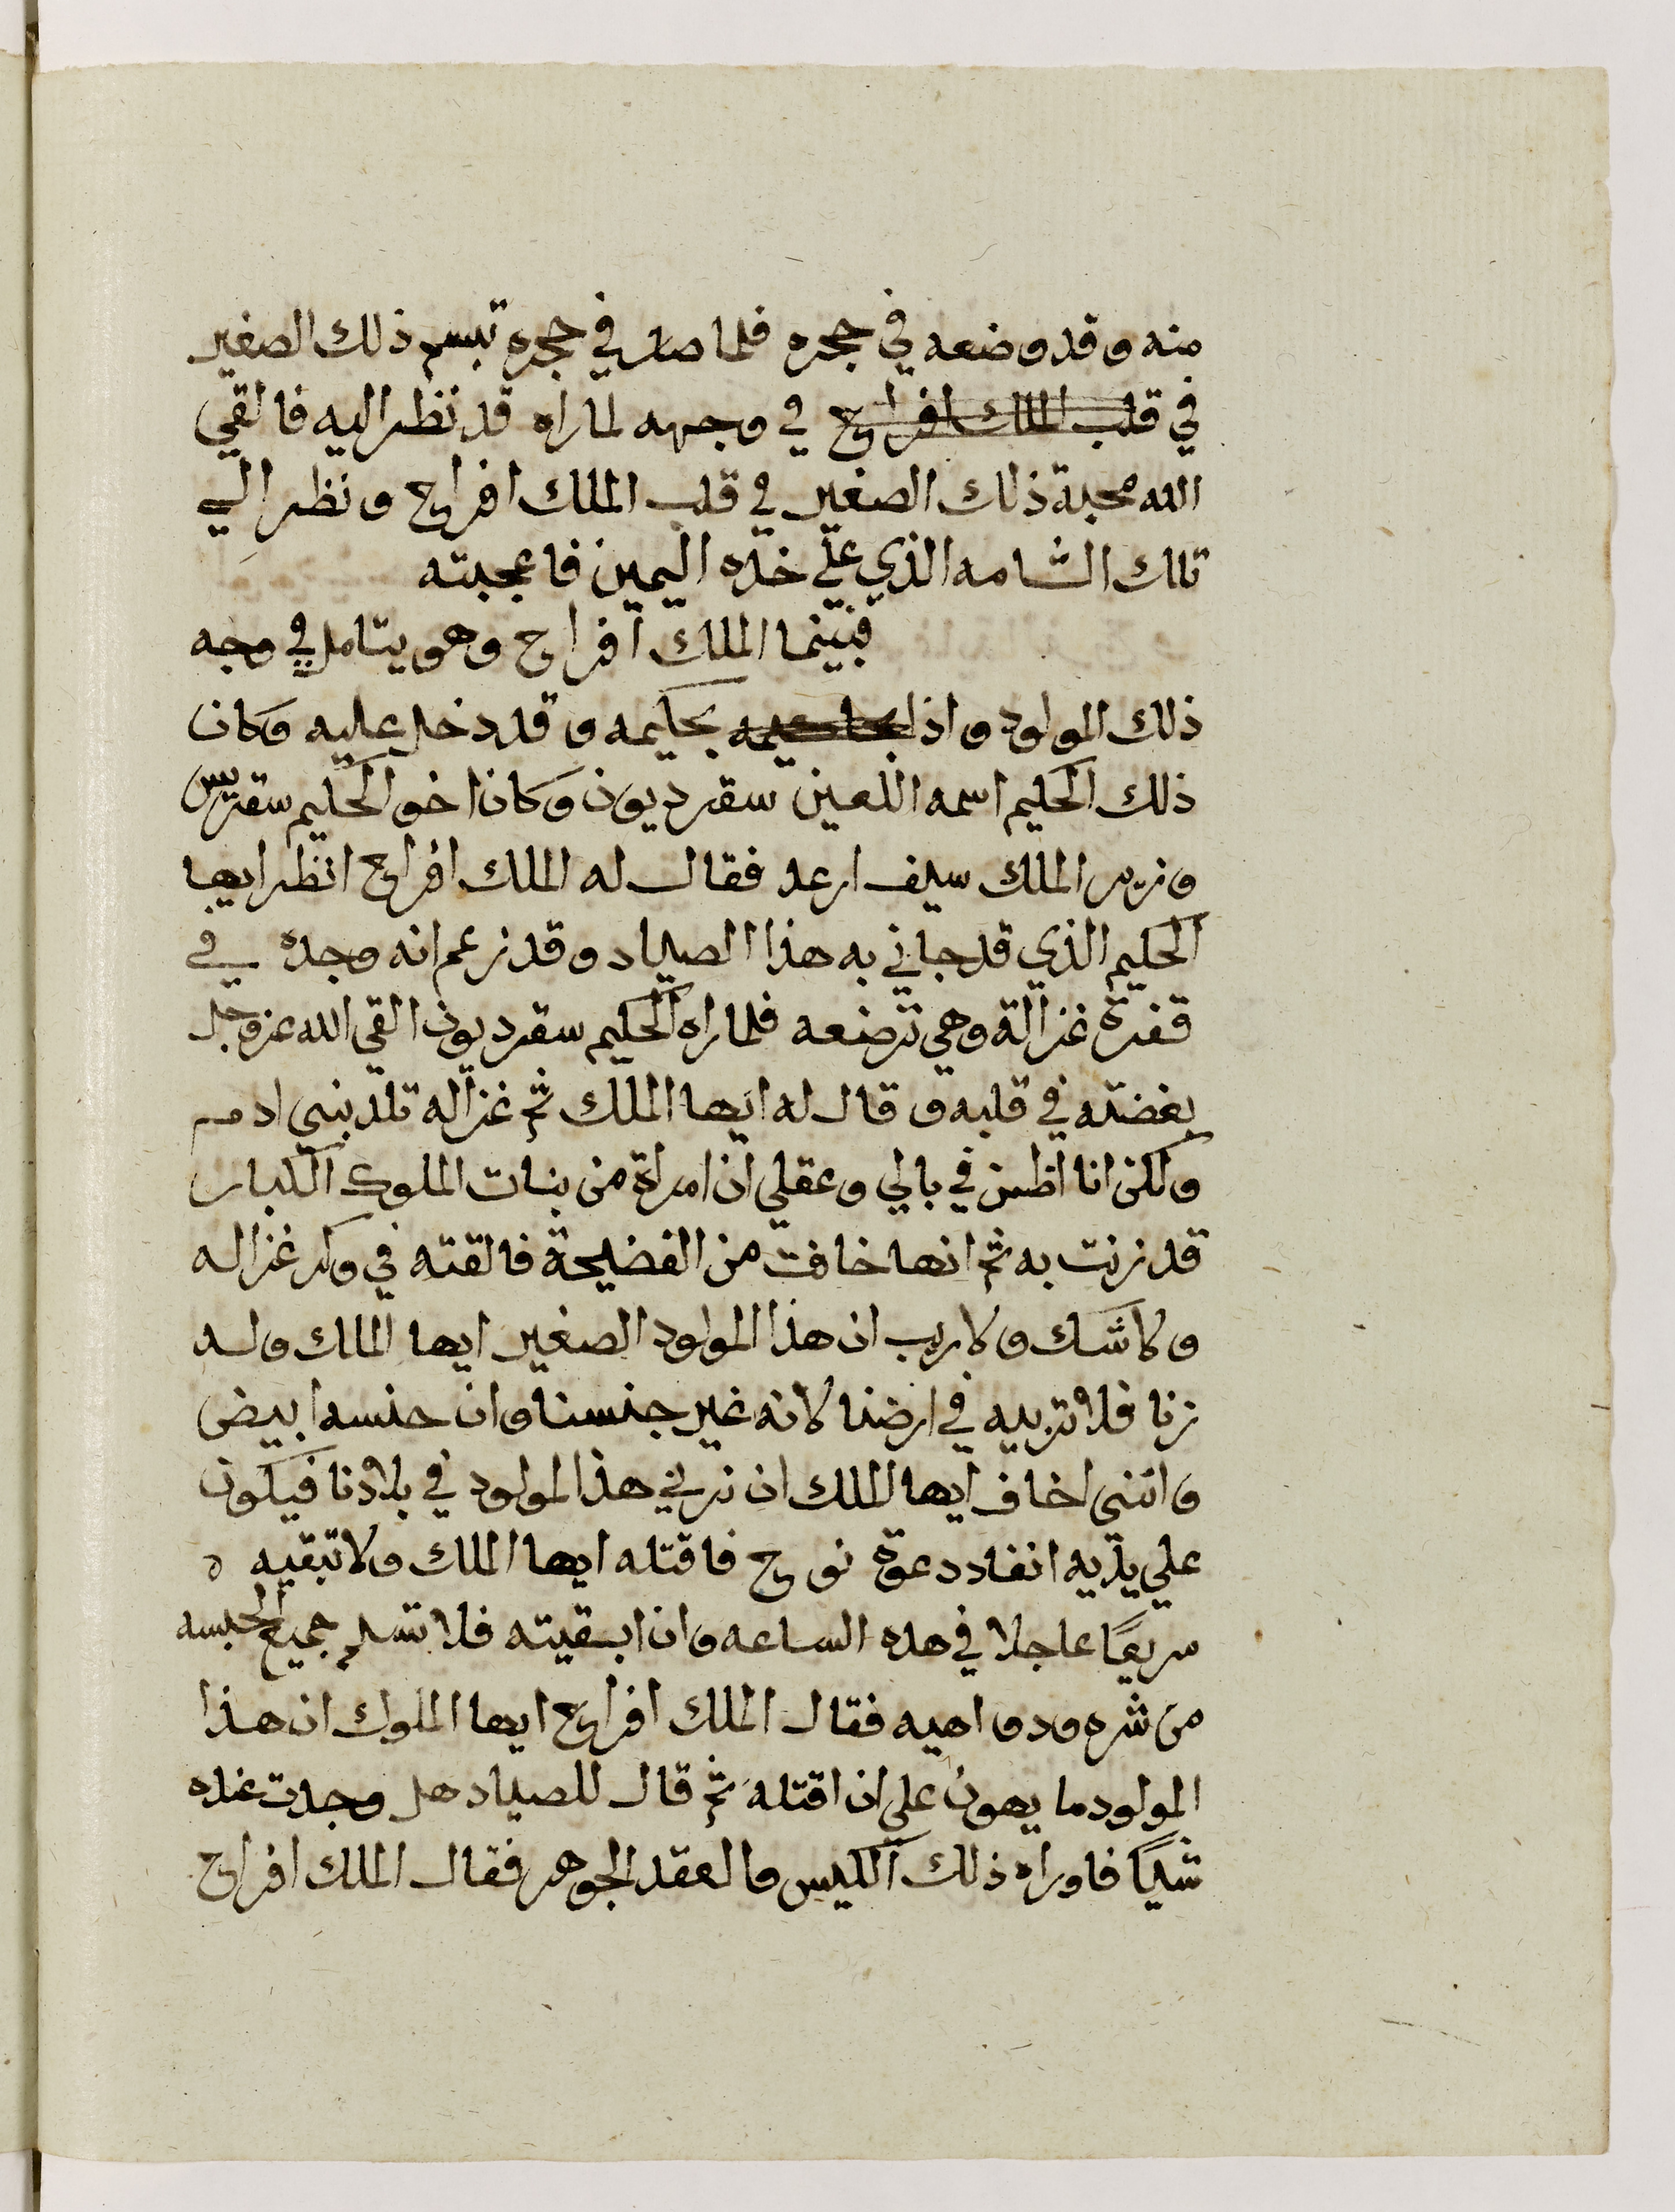 منه وقد وضعه في حجره فلما صار في حجره تبسم ذلك الصغير
في قلب الملك افراح في وجهه لما راه قد نظر اليه فالقي
الله محبة ذلك الصغير في قلب الملك افراح ونظر الي
تلك الشامه الذي علي خده اليمين فاعجبته
فبينما الملك افراح وهو يتامل في وجه
ذلك المولود واذا بحكيمه وقد دخل عليه وكان
ذلك الحكيم اسمه اللعين سقرديون وكان اخو الحكيم سقرديس
وزير الملك سيف ارعد فقال له الملك افراح انظر ايها
الحكيم الذي قد جاني به هذا الصياد وقد زعم انه وجده في
قفرة غزالة وهي ترضعه فلما راه الحكيم سقرديون القي الله عز وجل
بغضته في قلبه وقال له ايها الملك ثم غزاله تلد بني ادم
ولكن انا اظن في بالي وعقلي ان امراة من بنات الملوك الكبار
قد زنت به ثم انها خافت من الفضيحة فالقته في وكر غزاله
ولا شك ولا ريب ان هذا المولود الصغير ايها الملك ولد
زنا فلا تربيه في ارضنا لانه غير جنسنا وان جنسه ابيض
وانني اخاف ايها الملك ان نربي هذا المولود في بلادنا فيكون
علي يديه انفاد دعوة نوح فاقتله ايها الملك ولا تبقيه ه
سريعًا عاجلا في هده الساعه وان ابقيته فلا تسلم جميع الحبسه
من شره ودواهيه فقال الملك افراح ايها الملوك ان هذا
المولود ما يهون علي ان اقتله ثم قال للصياد هل وجدت عنده
شيًا فاوراه ذلك الكيس والعقد الجوهر فقال الملك افراح